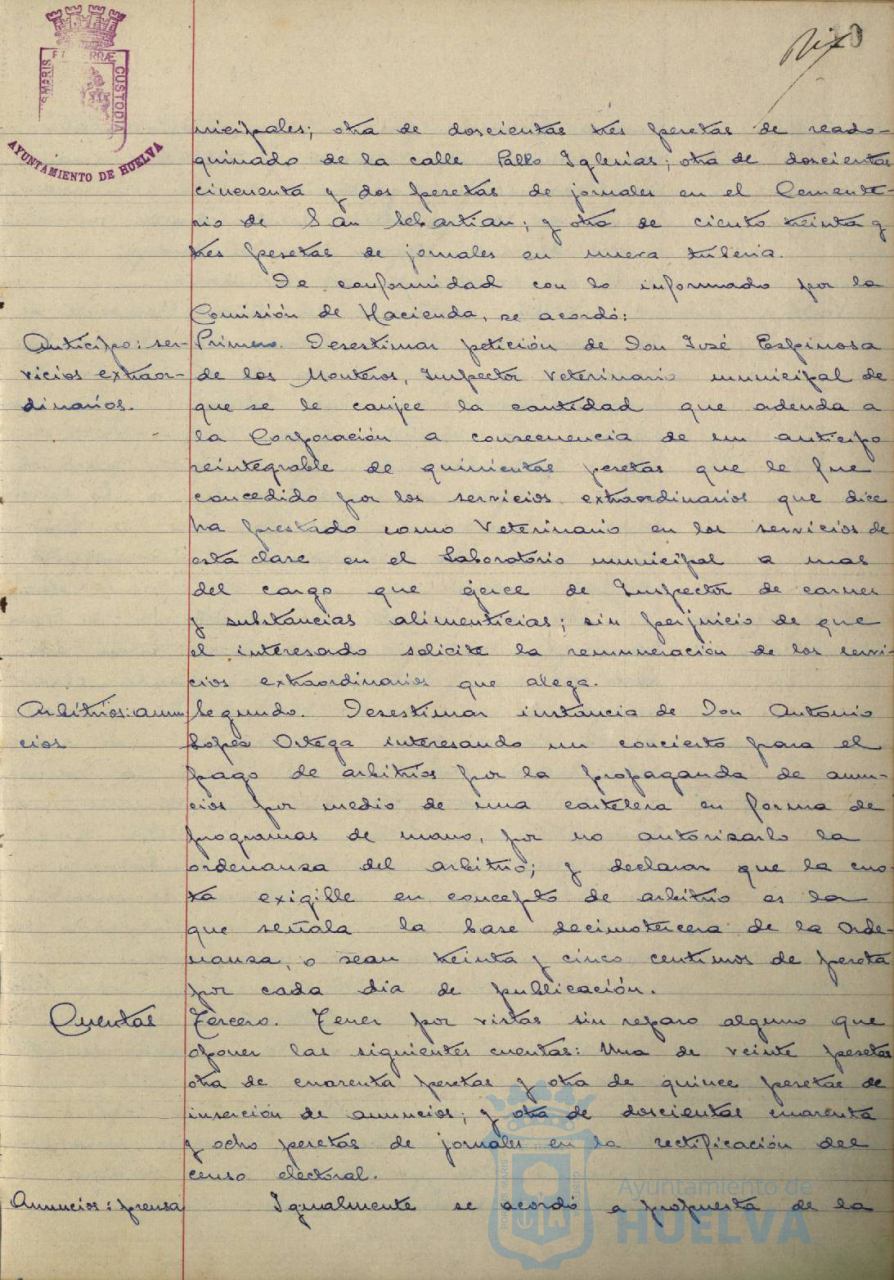 Diez 10
PORTUS MARIS ET TERRAE CUSTODIA
AYUNTAMIENTO DE HUELVA
nicipales; otra de doscientas tres pesetas de reado-
quinado de la calle Pablo Iglesias; otra de doscientas
cincuenta y dos pesetas de jornales en el Cemente-
rio de San Sebastian; y otra de ciento treinta y
tres pesetas de jornales en nueva tuberia.
De conformidad con lo informado por la
Comisión de Hacienda, se acordó:
Anticipo: ser-
vicios extraor-
dinarios.
Primero. Desestimar petición de Don José Espinosa
de los Monteros, Inspector Veterinario municipal de
que se le canjee la cantidad que adeuda a
la Corporación a consecuencia de un anticipo
reintegrable de quinientas pesetas que le fue
concedido por los servicios extraordinarios que dice
ha prestado como Veterinario en los servicios de
esta clase en el Laboratorio municipal a mas
del cargo que ejerce de Inspector de carnes
y substancias alimenticias; sin perjuicio de que
el interesado solicite la remuneración de los servi-
cios extraordinarios que alega.
Arbitrios: anun-
cios
Segundo. Desestimar instancia de Don Antonio
Lopez Ortega interesando un concierto para el
pago de arbitrios por la propaganda de anun-
cios por medio de una cartelera en forma de
programas de mano, por no autorizarlo la
ordenanza del arbitrio; y declarar que la cuo-
ta exigible en concepto de arbitrio es la
que señala la base decimotercera de la Orde-
nanza, o sean treinta y cinco centimos de peseta
por cada dia de publicación.
Cuentas
Tercero. Tener por vistas sin reparo alguno que
oponer las siguientes cuentas: Una de veinte pesetas
otra de cuarenta pesetas y otra de quince pesetas de
inserción de anuncios; y otra de doscientas cuarenta
y ocho pesetas de jornales en la rectificación del
censo electoral.
Anuncios: prensa
Igualmente se acordó a propuesta de la
Ayuntamiento de
HUELVA